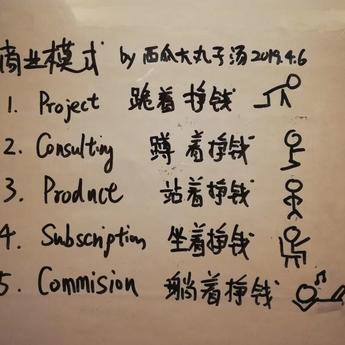 商业模式 by 西瓜大丸子汤 2019.4.6
1. Project 跪着挣钱
2. Consulting 蹲着挣钱
3. Product 站着挣钱
4. Subscription 坐着挣钱
5. Commision 躺着挣钱